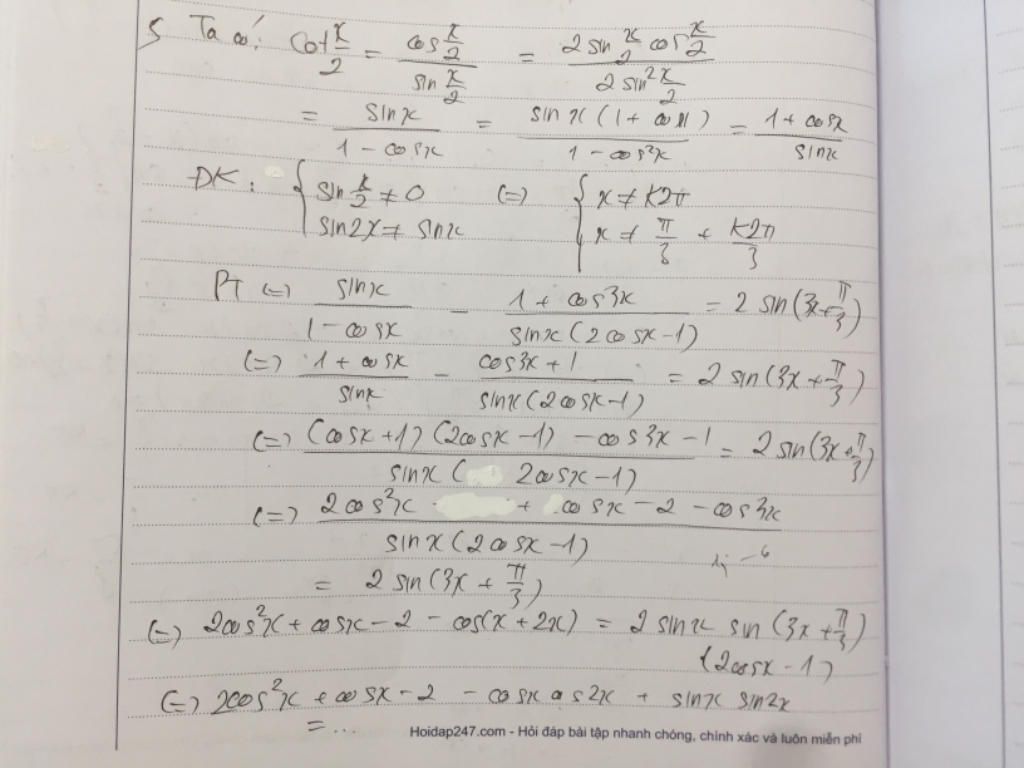 5 Ta có: cot x/2 = cos x/2 / sin x/2 = 2 sin x/2 cos x/2 / 2 sin² x/2
= sinx / 1 - cosx = sin x (1 + cosx) / 1 - cos²x = 1 + cosx / sinx
ĐK: { sin x/2 ≠ 0 (=) { x ≠ k2π
sin2x ≠ sinx x ≠ π/3 + k2π/3
PT (=) sinx / 1 - cosx - 1 + cos3x / sinx (2cosx - 1) = 2 sin(3x + π/3)
(=) 1 + cosx / sinx - cos3x + 1 / sinx (2cosx - 1) = 2 sin(3x + π/3)
(=) (cosx + 1) (2cosx - 1) - cos3x - 1 / sinx ( 2cosx - 1) = 2 sin(3x + π/3)
(=) 2cos²x + cosx - 2 - cos3x / sinx (2cosx - 1)
= 2 sin(3x + π/3)
(=) 2cos²x + cosx - 2 - cos(x + 2x) = 2 sinx sin(3x + π/3)
(2cosx - 1)
(=) 2cos²x + cosx - 2 - cosx cos2x + sinx sin2x
= ...
Hoidap247.com - Hỏi đáp bài tập nhanh chóng, chính xác và luôn miễn phí